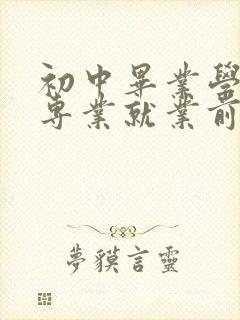 初中畢業學
專業就業前
夢貘言靈